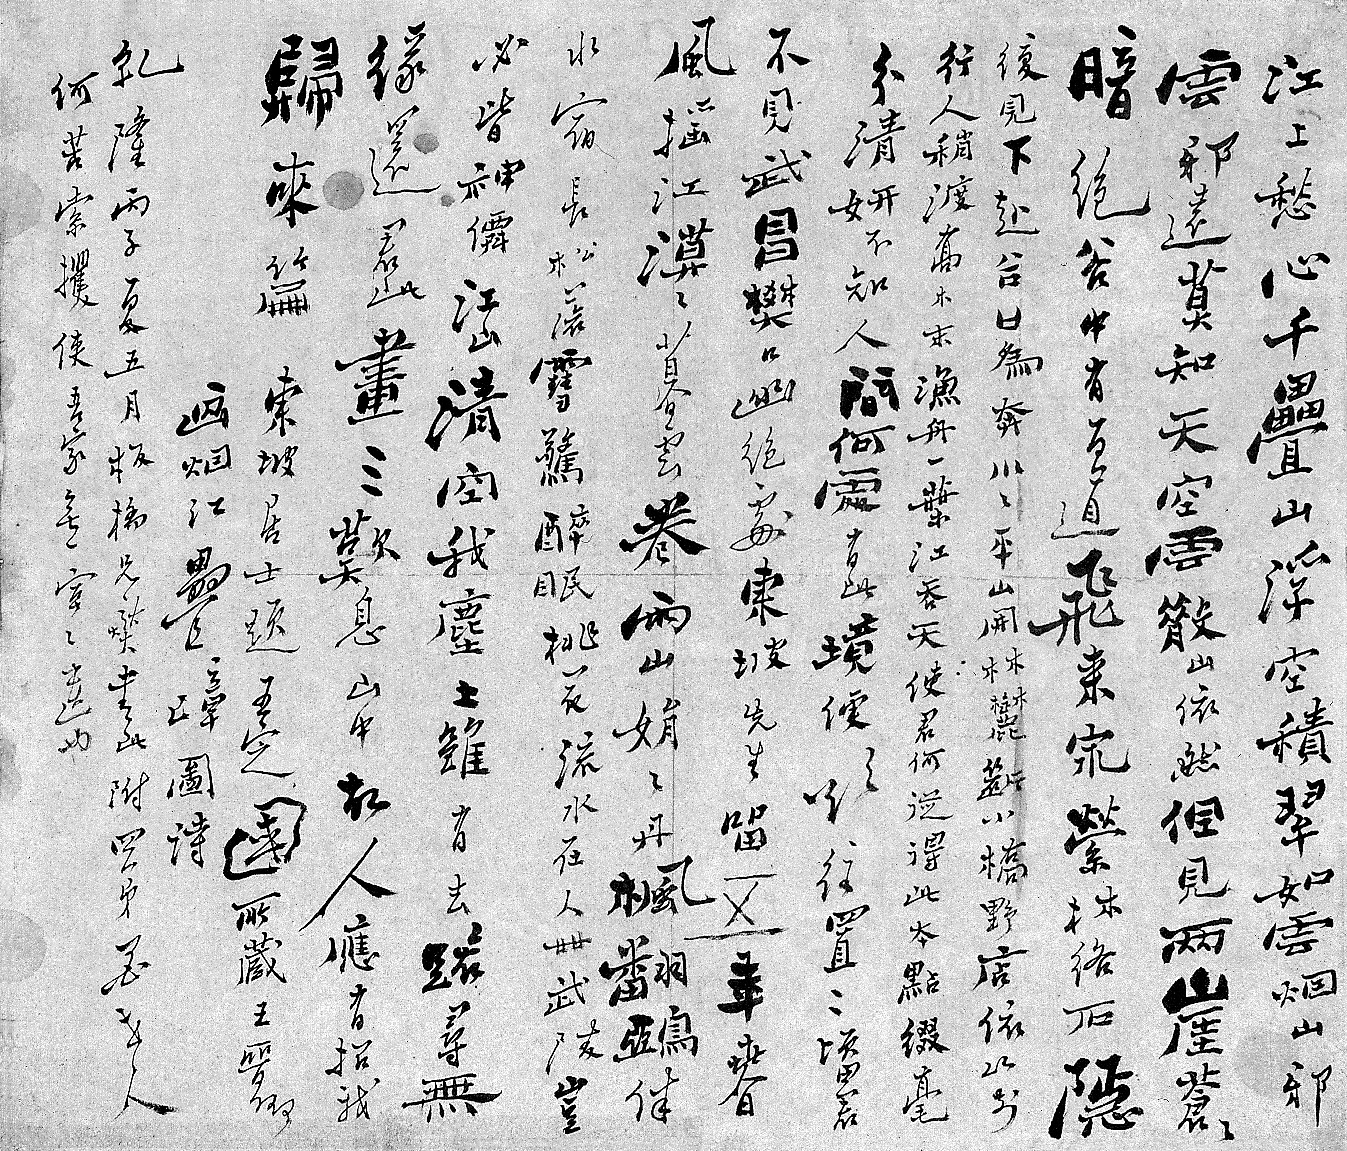 江上愁心千疊山浮空積翠如雲烟山邪
雲邪遠莫知天空雲散山依然但見兩崖蒼〻
暗絕谷中有百道飛來泉縈林絡石隱
復見下赴谷口為奔川〻平山開林麓斷小橋野店依山前
行人稍渡喬木末漁舟一葉江吞天使君何從得此本點綴毫
分清妍不知人間何處有此境便欲往置二頃君
不見武昌樊口幽絕處東坡先生留五年春
風搖江漠〻暮雲卷雨山娟〻丹楓翻鴉伴
水宿長松落雪驚醉眠桃花流水在人世武陵豈
必皆神僊江山清空我塵土雖有去路尋無
緣還君此畫三歎息山中故人應有招我
歸來篇 東坡居士題王定國所藏王晉卿
画烟江疊嶂圖詩
乾隆丙子夏五月板橋兄燮書此附四弟墨人
何苦索攫使吾家無一字之遺也